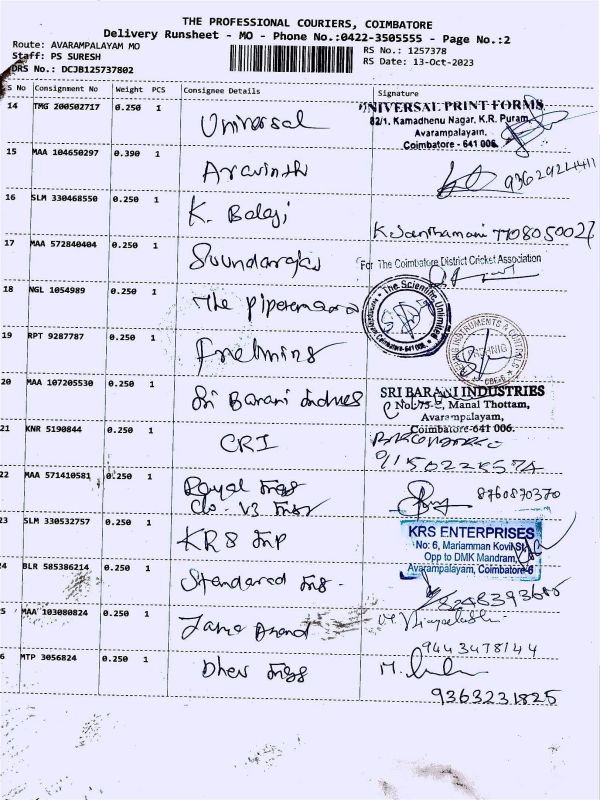 THE PROFESSIONAL COURIERS, COIMBATORE
Delivery Runsheet - MO - Phone No.:0422-3505555 - Page No.:2
Route: AVARAMPALAYAM MO
RS No.: 1257378
Staff: PS SURESH
RS Date: 13-Oct-2023
DRS No.: DCJB125737802
S No Consignment No Weight PCS Consignee Details Signature
14 TMG 200502717 0.250 1 Universal
UNIVERSAL PRINT FORMS
82/1, Kamadhenu Nagar, K.R. Puram,
Avarampalayam,
Coimbatore - 641 006.
15 MAA 104650297 0.390 1 Aravinth
9362924411
16 SLM 330468550 0.250 1 K. Balaji
K. Santhamani 7708050027
17 MAA 572840404 0.250 1
For The Coimbatore District Cricket Association
18 NGL 1054989 0.250 1 The
The Scientific Unlimited
Coimbatore-641 006
19 RPT 9287787 0.250 1
INSTRUMENTS & CONTROLS
CBE-6
20 MAA 107205530 0.250 1 Sri Barani
SRI BARANI INDUSTRIES
No: 75-C, Manal Thottam,
Avarampalayam,
Coimbatore-641 006.
21 KNR 5190844 0.250 1 CRI
22 MAA 571410581 0.250 1 Royal
C/o V3
8760870370
23 SLM 330532757 0.250 1 KRS
KRS ENTERPRISES
No: 6, Mariamman Kovil St,
Opp to DMK Mandram,
Avarampalayam, Coimbatore-6
24 BLR 585386214 0.250 1 Standared
25 MAA 103080824 0.250 1
9443478144
26 MTP 3056824 0.250 1 Dhev
9363231825